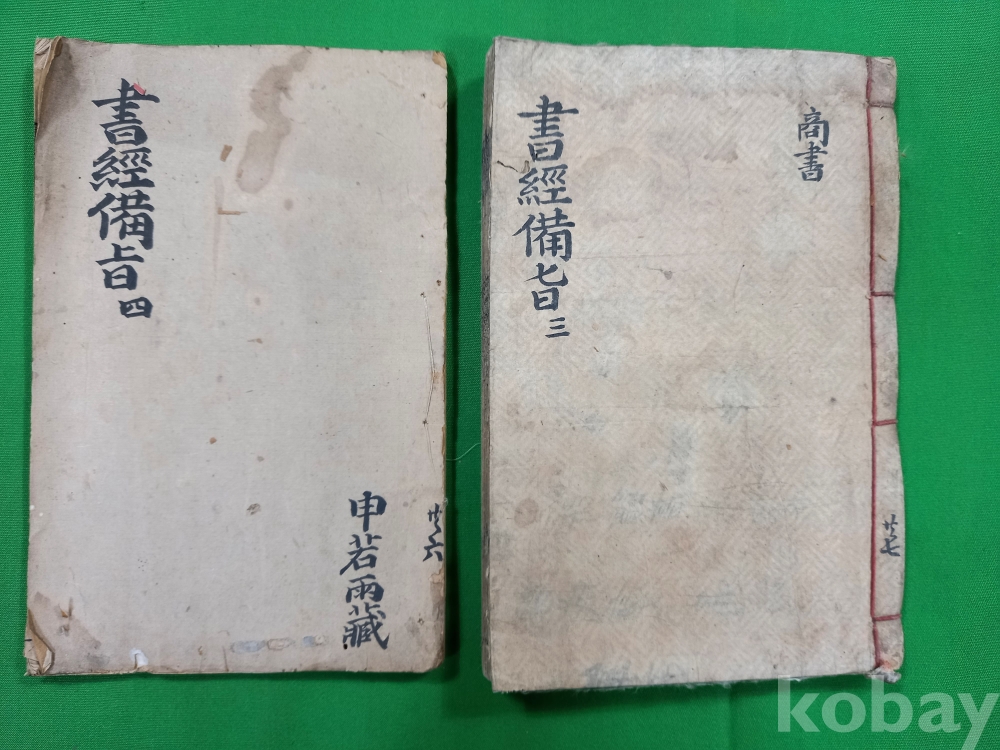 書經備旨 四
申若雨藏
廿六
商書
書經備旨 三
廿七
kobay